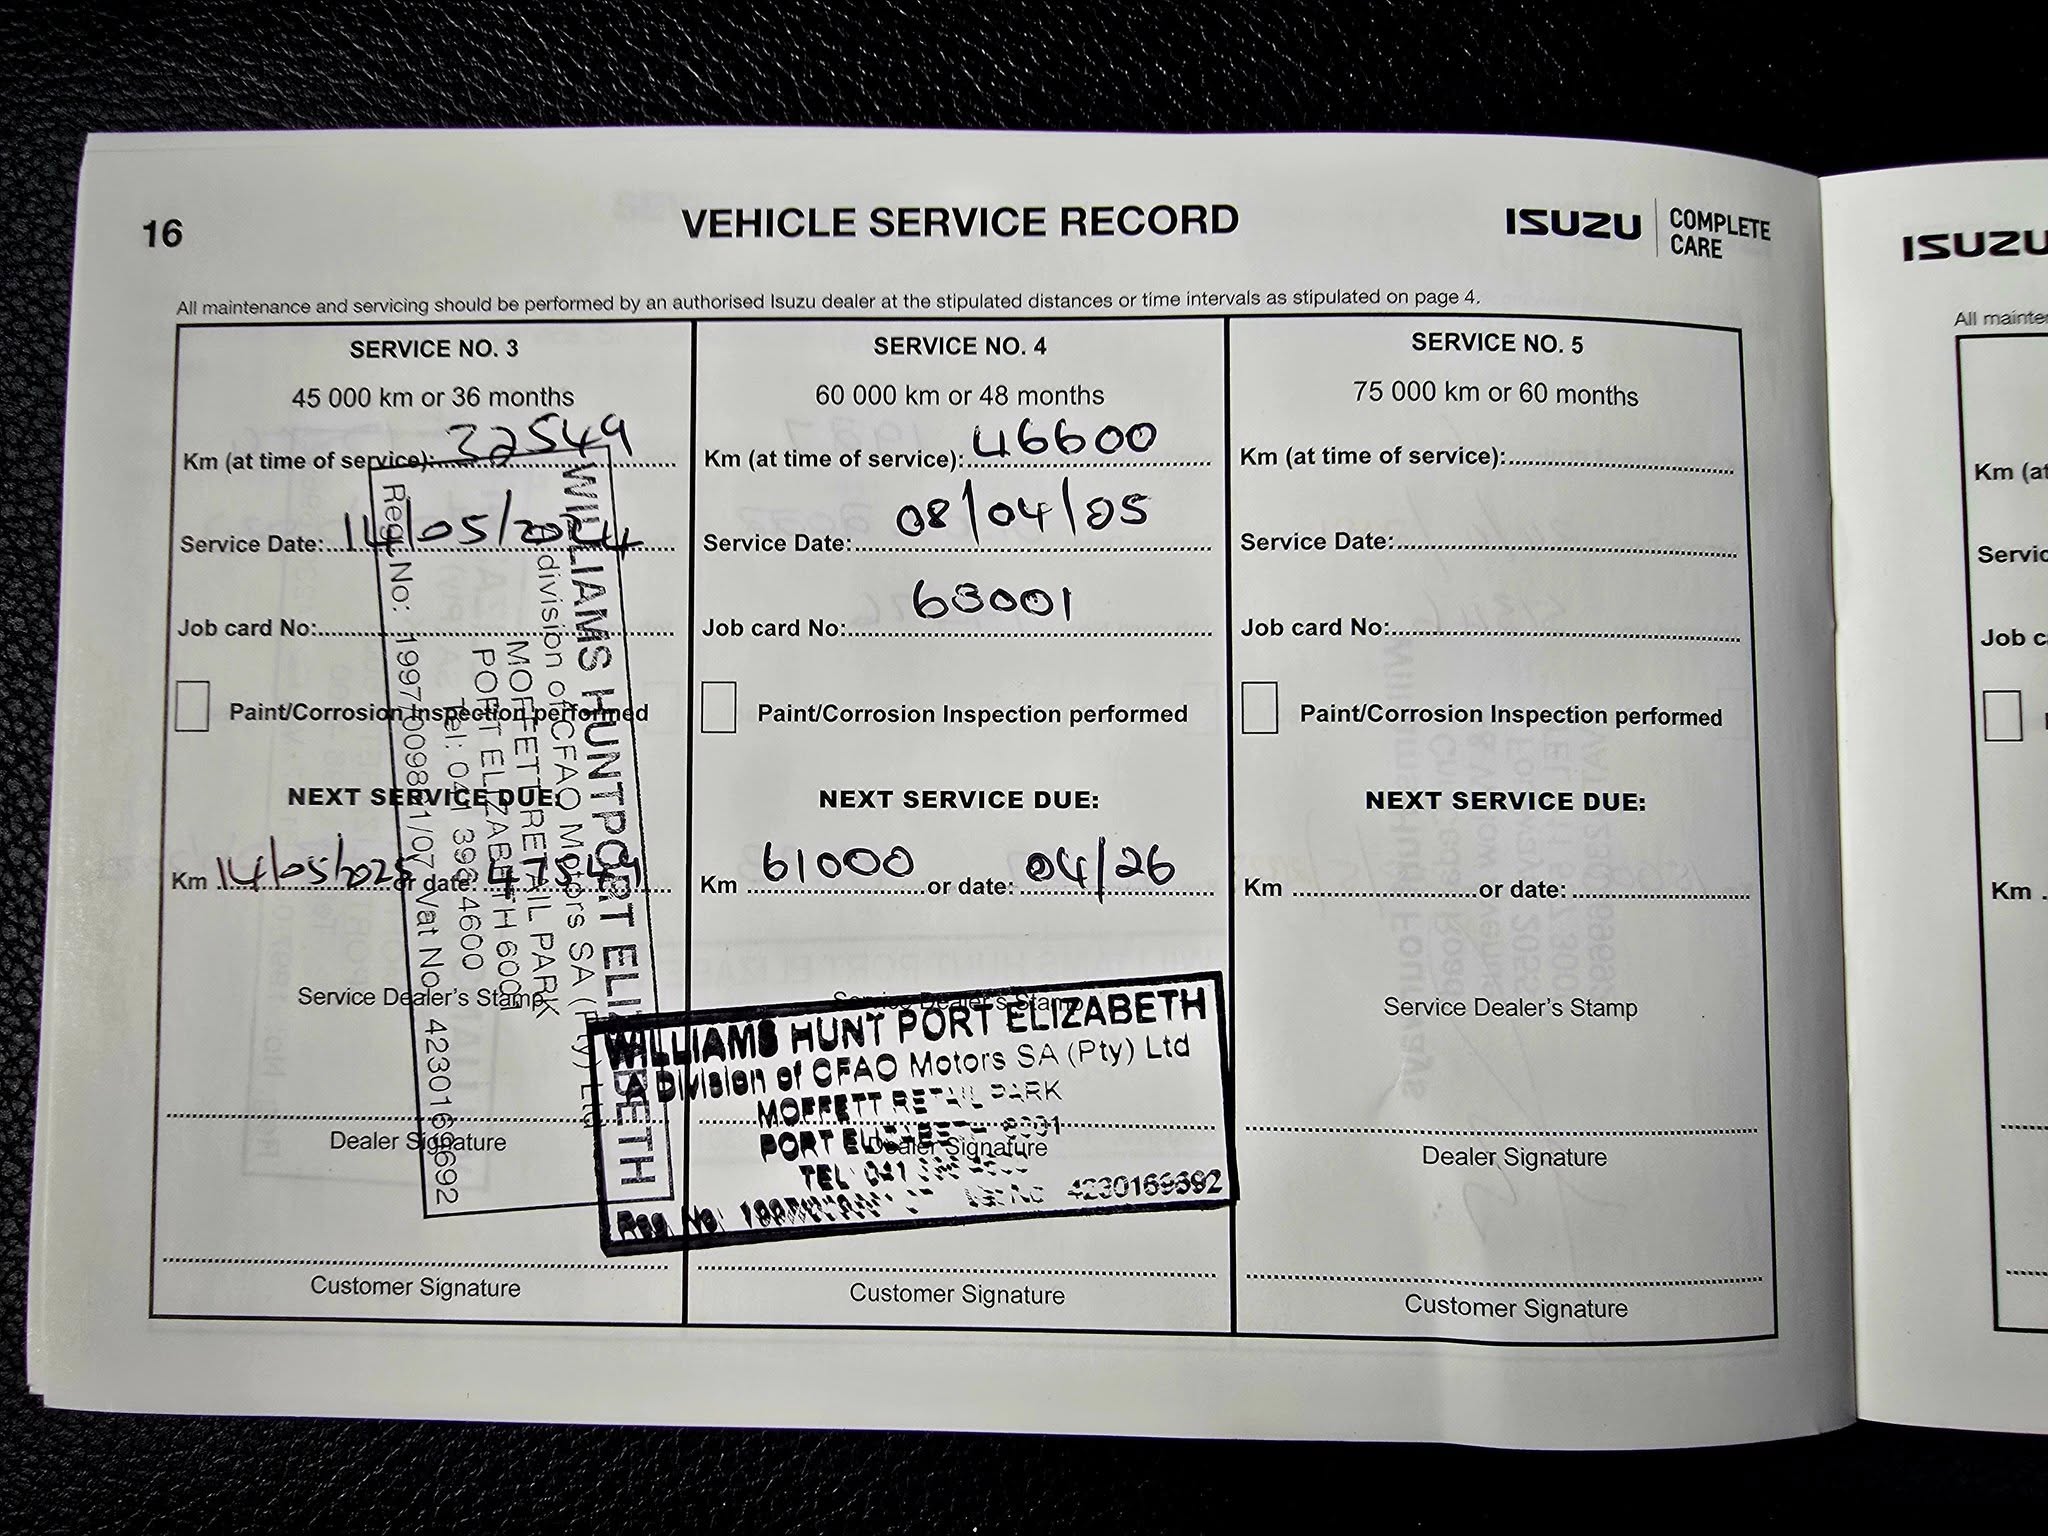 16
VEHICLE SERVICE RECORD
ISUZU COMPLETE CARE
All maintenance and servicing should be performed by an authorised Isuzu dealer at the stipulated distances or time intervals as stipulated on page 4.
SERVICE NO. 3
45 000 km or 36 months
Km (at time of service): 32549
Service Date: 14/05/2024
Job card No:
Paint/Corrosion Inspection performed
NEXT SERVICE DUE:
Km 14/05/2025 or date: 47549
Service Dealer's Stamp
WILLIAMS HUNT PORT ELIZABETH
division of CFAO Motors SA (Pty) Ltd
MOFFETT RETAIL PARK
PORT ELIZABETH 6001
Tel: 041 393 4600
Reg. No: 1997/009861/07 Vat No. 4230169692
Dealer Signature
Customer Signature
SERVICE NO. 4
60 000 km or 48 months
Km (at time of service): 46600
Service Date: 08/04/05
Job card No: 63001
Paint/Corrosion Inspection performed
NEXT SERVICE DUE:
Km 61000 or date: 04/26
Service Dealer's Stamp
WILLIAMS HUNT PORT ELIZABETH
A Division of CFAO Motors SA (Pty) Ltd
MOFFETT RETAIL PARK
PORT ELIZABETH 6001
TEL 041
Reg. No: Vat No 4230169692
Dealer Signature
Customer Signature
SERVICE NO. 5
75 000 km or 60 months
Km (at time of service):
Service Date:
Job card No:
Paint/Corrosion Inspection performed
NEXT SERVICE DUE:
Km or date:
Service Dealer's Stamp
Dealer Signature
Customer Signature
ISUZU
All
Km (at
Job
Km